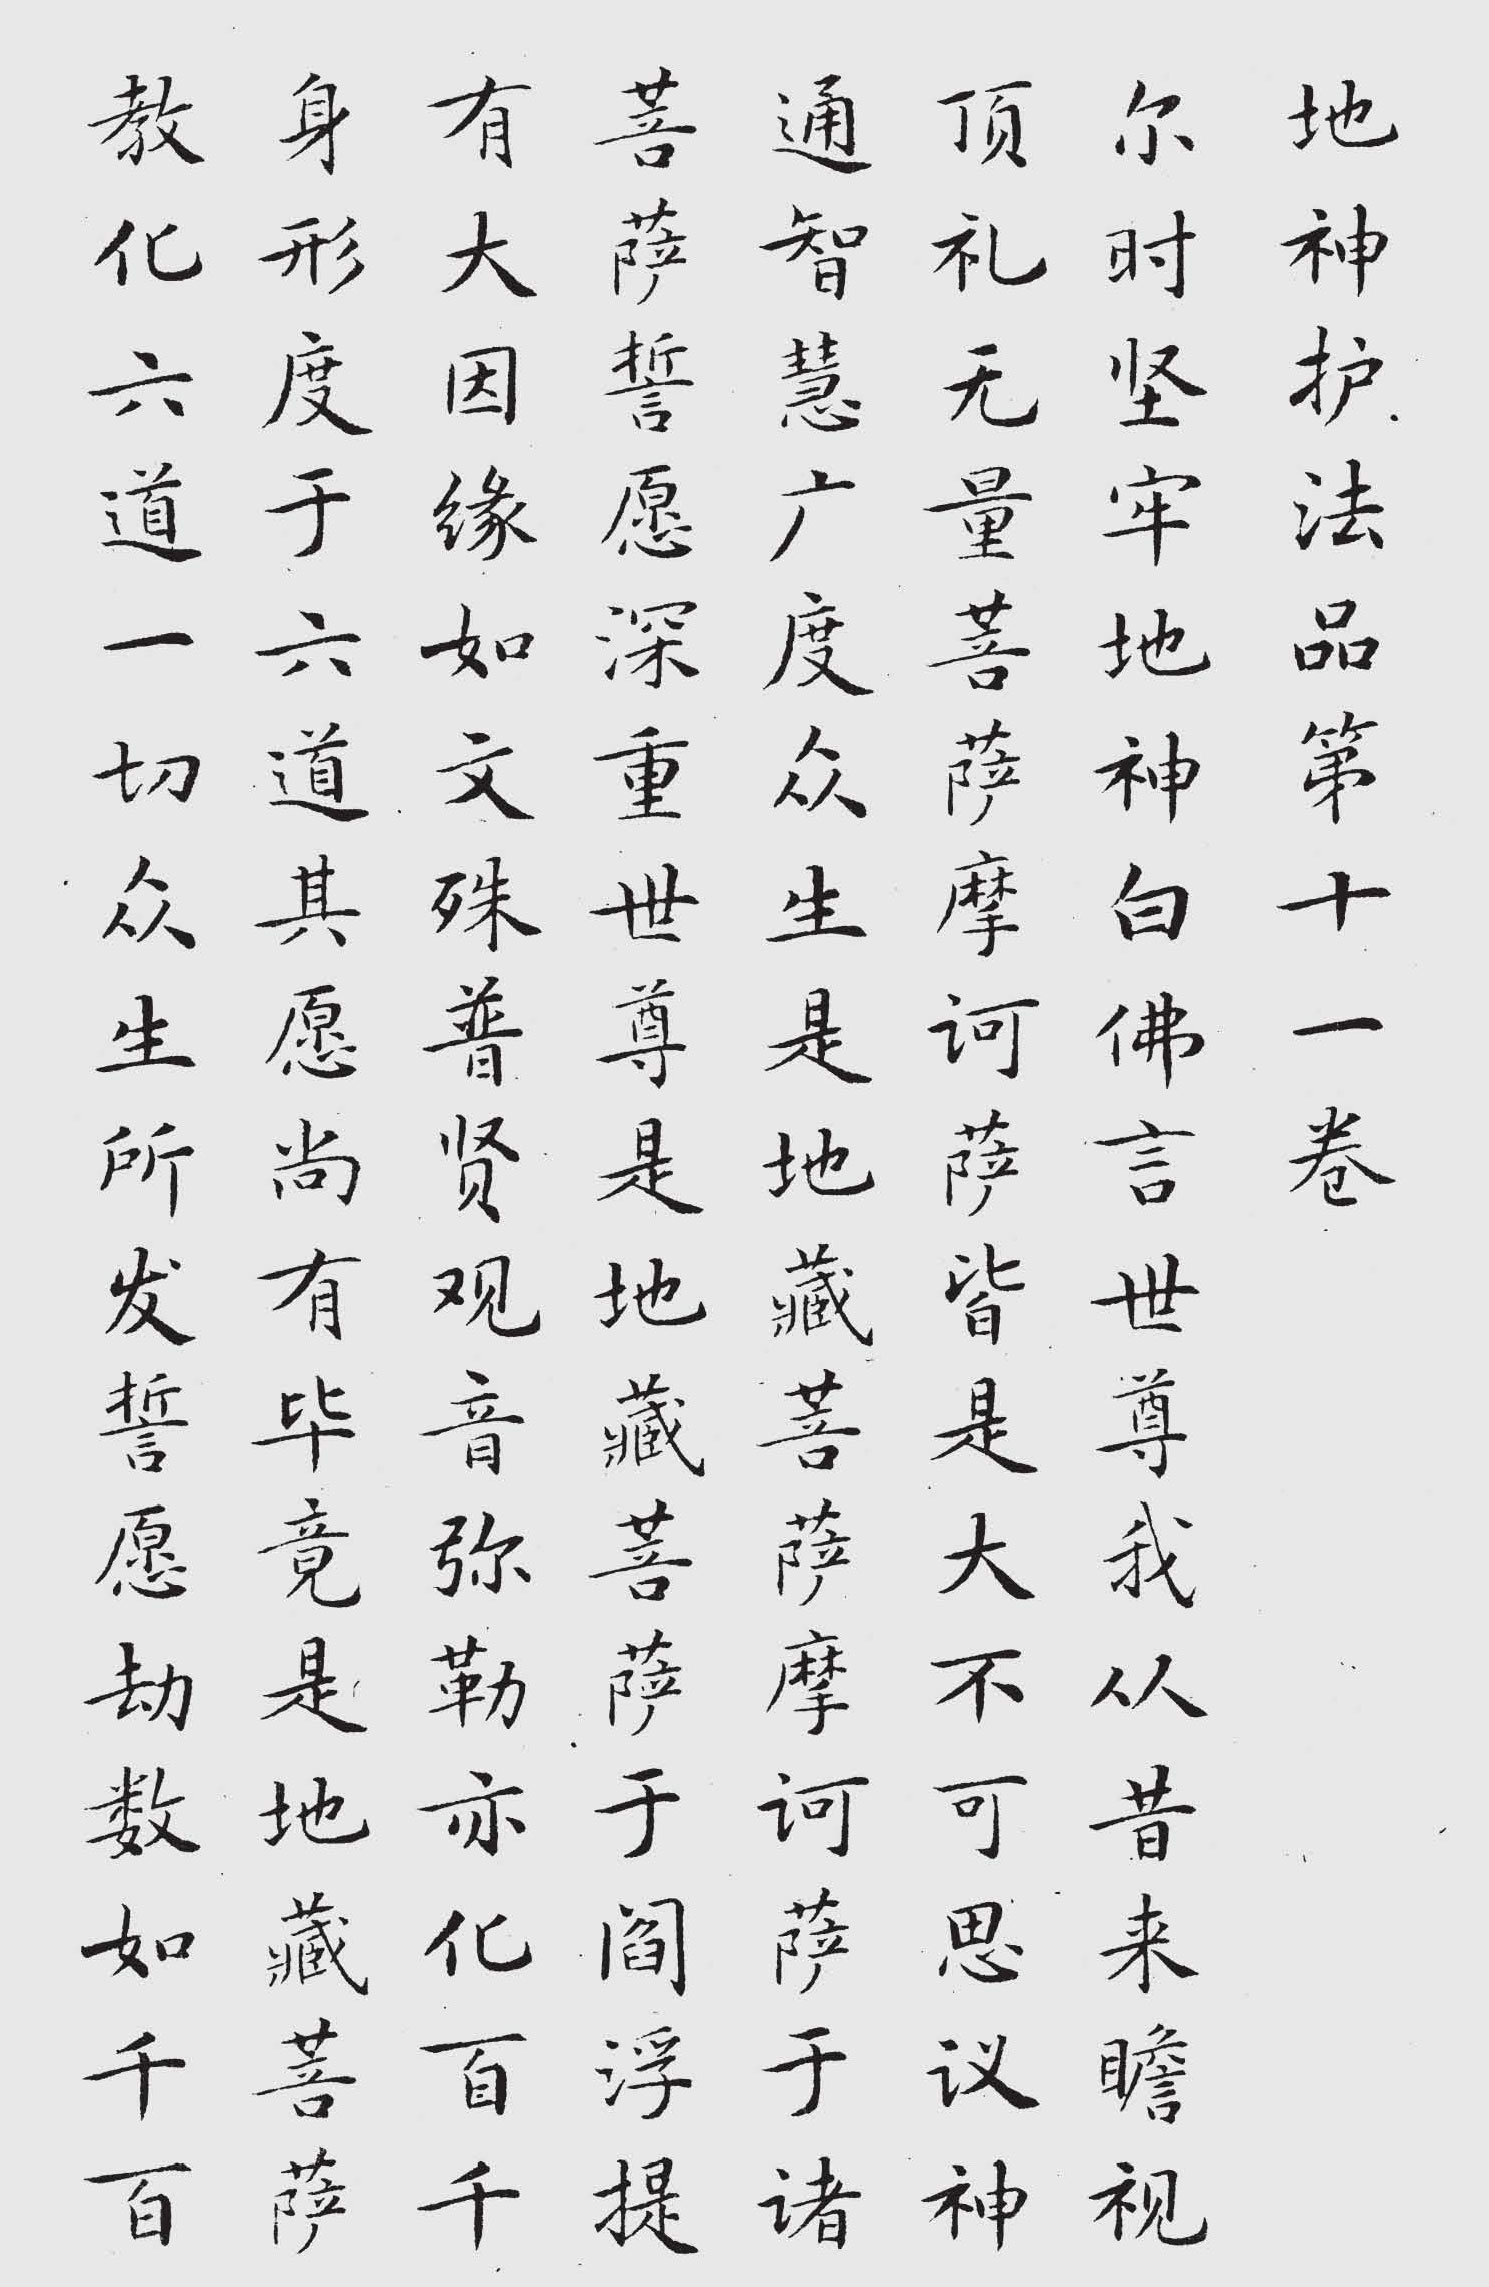 地神护法品第十一卷
尔时坚牢地神白佛言世尊我从昔来瞻视
顶礼无量菩萨摩诃萨皆是大不可思议神
通智慧广度众生是地藏菩萨摩诃萨于诸
菩萨誓愿深重世尊是地藏菩萨于阎浮提
有大因缘如文殊普贤观音弥勒亦化百千
身形度于六道其愿尚有毕竟是地藏菩萨
教化六道一切众生所发誓愿劫数如千百